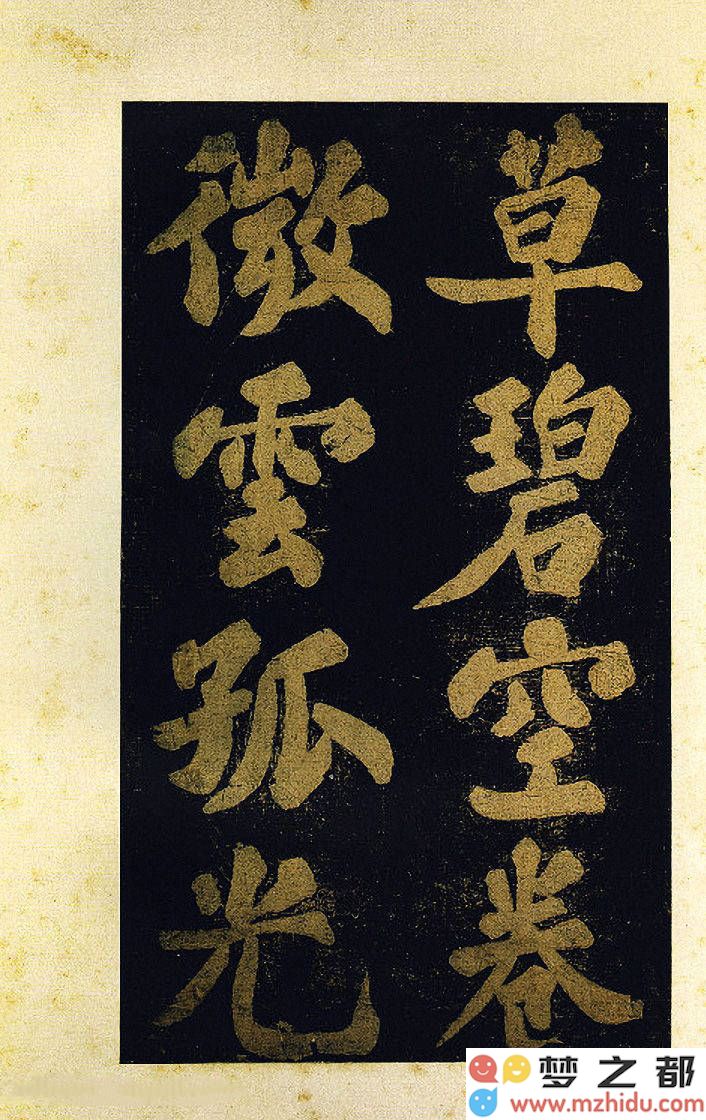 草碧空卷
微雲孤光
梦之都
www.mzhidu.com